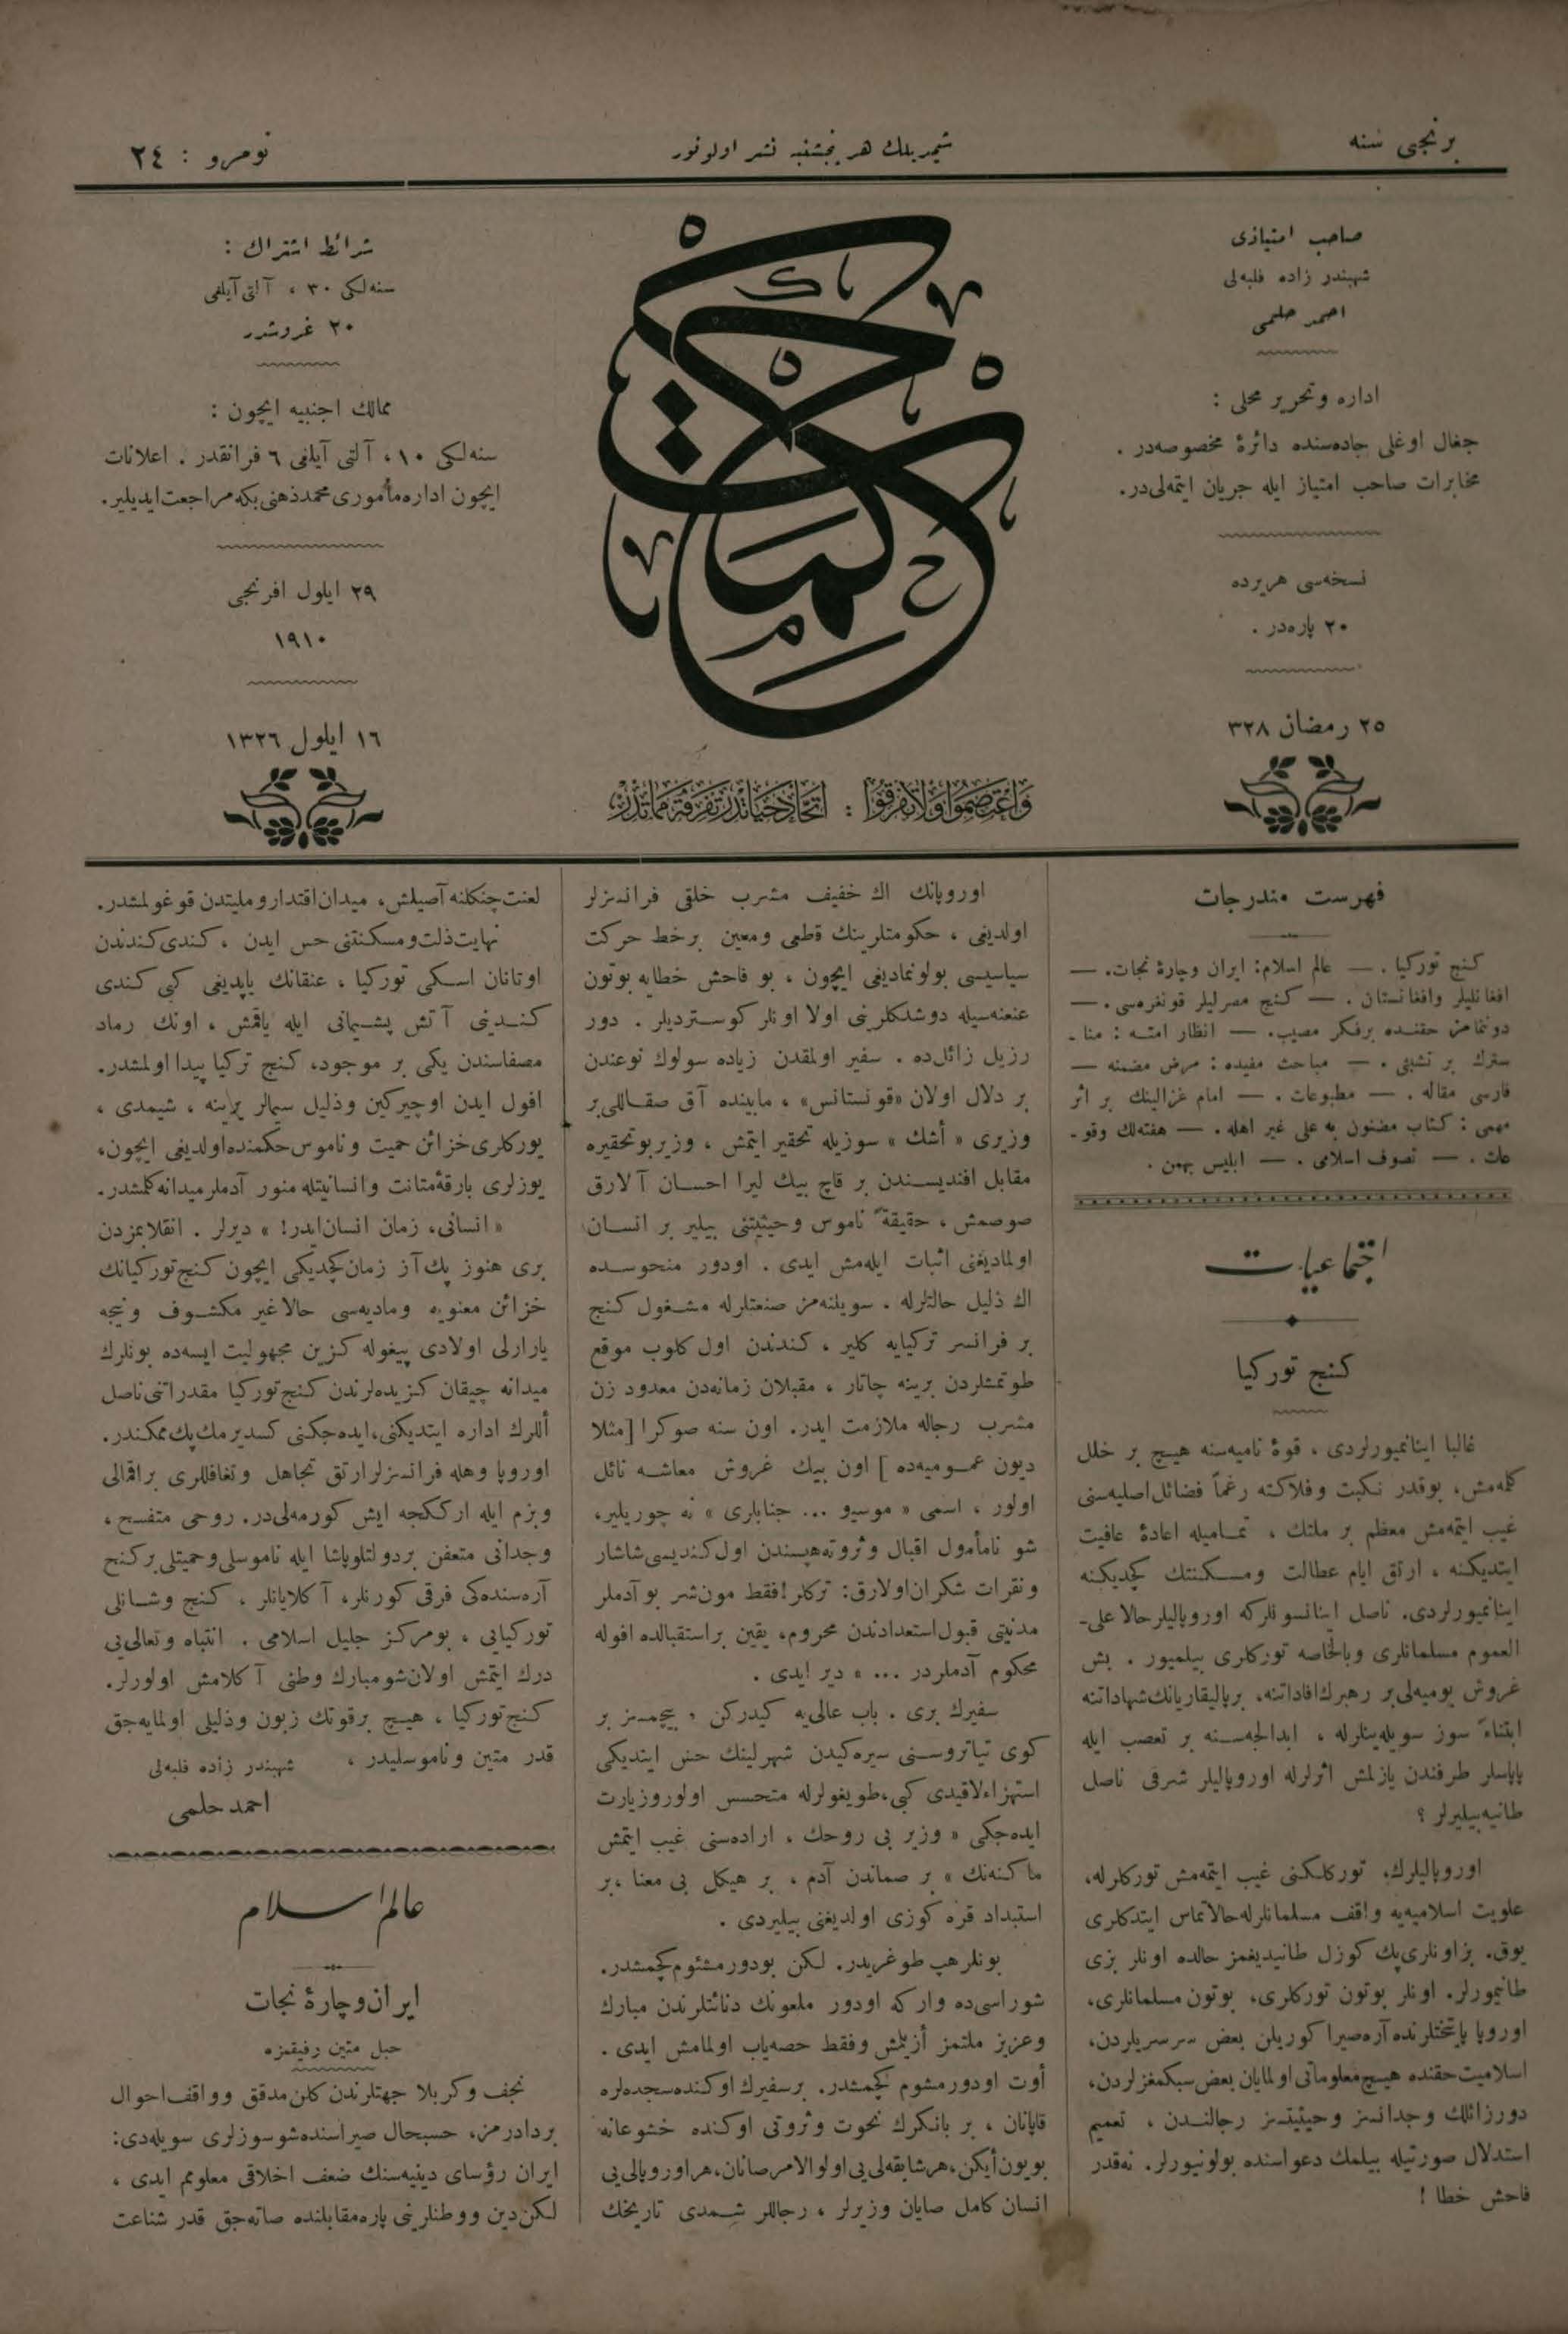 برنجی سنه
شیمدیلك هر پنجشنبه نشر اولونور
نومرو : ٢٤
صاحب امتیازی
شهبندر زاده فلبه‌لی
احمد حلمی
اداره وتحریر محلی :
جغال اوغلی جاده‌سنده دائرهٔ مخصوصه‌در .
مخابرات صاحب امتیاز ایله جریان ایتمه‌لی‌در.
نسخه‌سی هریرده
٢٠ پاره‌در .
٢٥ رمضان ٣٢٨
حكمت
واعتصموا ولا تفرقوا : اتحاد حیاتدر تفرقه مماتدر
شرائط اشتراك :
سنه‌لكی ٣٠ ، آلتی آیلغی
٢٠ غروشدر
ممالك اجنبیه ایچون :
سنه‌لكی ١٠ ، آلتی آیلغی ٦ فرانقدر . اعلانات
ایچون اداره مأموری محمد ذهنی بكه مراجعت ایدیلیر.
٢٩ ایلول افرنجی
١٩١٠
١٦ ایلول ١٣٢٦
فهرست مندرجات
كنج توركیا . — عالم اسلام: ایران وچارهٔ نجات. —
افغانلیلر وافغانستان . — كنج مصرلیلر قونغره‌سی . —
دونمامز حقنده برفكر مصیب. — انظار امته : منا-
سترك بر تشبثی . — مباحث مفیده : مرض مضمنه —
فارسی مقاله . — مطبوعات . — امام غزالینك بر اثر
مهمی : كتاب مضنون به علی غیر اهله . — هفته‌لك وقو-
عات . — تصوف اسلامی . — ابلیس بهمن .
اجتماعیات
كنج توركیا
غالبا اینانمیورلردی ، قوهٔ نامیه‌سنه هیچ بر خلل
كلمه‌مش، بوقدر نكبت وفلاكته رغماً فضائل اصلیه‌سنی
غیب ایتمه‌مش معظم بر ملتك ، تمامیله اعادهٔ عافیت
ایتدیكنه ، ارتق ایام عطالت ومسكنتك كچدیكنه
اینانمیورلردی. ناصل اینانسونلركه اوروپالیلر حالا علی-
العموم مسلمانلری وبالخاصه توركلری بیلمیور . بش
غروش یومیه‌لی بر رهبرك افاداتنه، برپالیقاریانك شهاداتنه
ابتناءً سوز سویله‌ینلرله ، ابدالجه‌سنه بر تعصب ایله
پاپاسلر طرفندن یازلمش اثرلرله اوروپالیلر شرقی ناصل
طانیه‌بیلیرلر ؟
اوروپالیلرك، توركلكنی غیب ایتمه‌مش توركلرله،
علویت اسلامیه‌یه واقف مسلمانلرله حالا تماس ایتدكلری
یوق. بز اونلری پك كوزل طانیدیغمز حالده اونلر بزی
طانیمورلر. اونلر بوتون توركلری، بوتون مسلمانلری،
اوروپا پایتختلرنده آره‌صیرا كوریلن بعض سرسریلردن،
اسلامیت حقنده هیچ معلوماتی اولمایان بعض سبكمغزلردن،
دورزائلك وجدانسز وحیثیتسز رجالندن ، تعمیم
استدلال صورتیله بیلمك دعواسنده بولونیورلر. نه‌قدر
فاحش خطا !
اوروپانك اك خفیف مشرب خلقی فرانسزلر
اولدیغی ، حكومتلرینك قطعی ومعین برخط حركت
سیاسیسی بولونمادیغی ایچون ، بو فاحش خطایه بوتون
عنعنه‌سیله دوشدكلرینی اولا اونلر كوستردیلر . دور
رزیل زائل‌ده . سفیر اولمقدن زیاده سولوك نوعندن
بر دلال اولان «قونستانس» ، مابینده آق صقاللی بر
وزیری « أشك » سوزیله تحقیر ایتمش ، وزیر بوتحقیره
مقابل افندیسندن بر قاچ بیك لیرا احسان آلارق
صوصمش ، حقیقةً ناموس وحیثیتنی بیلیر بر انسان
اولمادیغنی اثبات ایله‌مش ایدی . اودور منحوسده
اك ذلیل حالتلرله . سویلنه‌مز صنعتلرله مشغول كنج
بر فرانسز تركیایه كلیر ، كندندن اول كلوب موقع
طوتمشلردن برینه چاتار ، مقبلان زمانه‌دن معدود زن
مشرب رجاله ملازمت ایدر. اون سنه صوكرا [مثلا
دیون عمومیه‌ده ] اون بیك غروش معاشه نائل
اولور ، اسمی « موسیو ... جنابلری » نه چوریلیر،
شو نامأمول اقبال وثروته هپسندن اول كندیسی شاشار
ونقرات شكران اولارق: تركلر! فقط مون‌شر بو آدملر
مدنیتی قبول استعدادندن محروم، یقین براستقبالده افوله
محكوم آدملردر ... » دیر ایدی .
سفیرك بری . باب عالی‌یه كیدركن ، بیچمسز بر
كوی تیاتروسنی سیره كیدن شهرلینك حس ایتدیكی
استهزاء لاقیدی كبی، طویغولرله متحسس اولور وزیارت
ایده‌جكی « وزیر بی روحك ، اراده‌سنی غیب ایتمش
ماكنه‌نك » بر صماندن آدم ، بر هیكل بی معنا ، بر
استبداد قره كوزی اولدیغنی بیلیردی .
بونلر هپ طوغریدر. لكن بودور مشئوم كچمشدر.
شوراسی‌ده وار كه اودور ملعونك دنائتلرندن مبارك
وعزیز ملتمز أزیلمش وفقط حصه‌یاب اولمامش ایدی .
أوت اودور مشوم كچمشدر. برسفیرك اوكنده سجده‌لره
قاپانان ، بر بانكرك نخوت وثروتی اوكنده خشوعانه
بویون أیكن، هرشابقه‌لی‌یی اولوالامر صانان، هر اوروپالی‌یی
انسان كامل صایان وزیرلر ، رجاللر شمدی تاریخك
لعنت چنكلنه آصیلمش، میدان اقتدار وملیتدن قوغولمشدر.
نهایت ذلت ومسكنتنی حس ایدن ، كندی كندندن
اوتانان اسكی توركیا ، عنقانك یاپدیغی كبی كندی
كندینی آتش پشیمانی ایله یاقمش ، اونك رماد
مصفاسندن یكی بر موجود، كنج تركیا پیدا اولمشدر.
افول ایدن اوچیركین وذلیل سیمالر یرینه ، شیمدی ،
یوركلری خزائن حمیت وناموس حكمنده اولدیغی ایچون،
یوزلری بارقهٔ متانت وانسانیتله منور آدملر میدانه كلمشدر.
« انسانی، زمان انسان ایدر! » دیرلر . انقلابمزدن
بری هنوز پك آز زمان كچدیكی ایچون كنج توركیانك
خزائن معنویه ومادیه‌سی حالا غیر مكشوف ونیجه
یارارلی اولادی پیغوله كزین مجهولیت ایسه‌ده بونلرك
میدانه چیقان كزیده‌لرندن كنج توركیا مقدراتنی ناصل
أللرك اداره ایتدیكنی، ایده‌جكنی كسدیرمك پك ممكندر.
اوروپا وهله فرانسزلر ارتق تجاهل وتغافللری براقمالی
وبزم ایله ارككجه ایش كورمه‌لی‌در. روحی متفسخ ،
وجدانی متعفن بردولتلو پاشا ایله ناموسلی وحمیتلی بر كنج
آره‌سنده‌كی فرقی كورنلر، آكلایانلر ، كنج وشانلی
توركیایی ، بومركز جلیل اسلامی . انتباه وتعالی‌یی
درك ایتمش اولان شو مبارك وطنی آكلامش اولورلر.
كنج توركیا ، هیچ برقوتك زبون وذلیلی اولمایه‌جق
قدر متین وناموسلیدر ،
شهبندر زاده فلبه‌لی
احمد حلمی
عالم اسلام
ایران وچارهٔ نجات
حبل متین رفیقمزه
نجف وكربلا جهتلرندن كلن مدقق وواقف احوال
بردادرمز، حسبحال صیراسنده شو سوزلری سویله‌دی:
ایران رؤسای دینیه‌سنك ضعف اخلاقی معلومم ایدی ،
لكن دین ووطنلرینی پاره مقابلنده صاته‌جق قدر شناعت